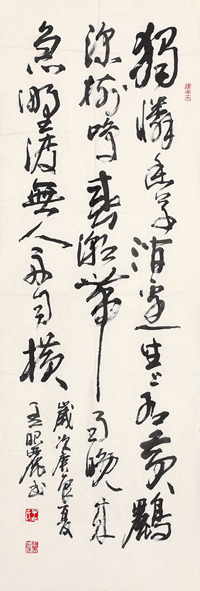 獨憐幽草澗邊生上有黃鸝
深樹鳴春潮帶雨晚來
急野渡無人舟自橫
歲次庚夏
書